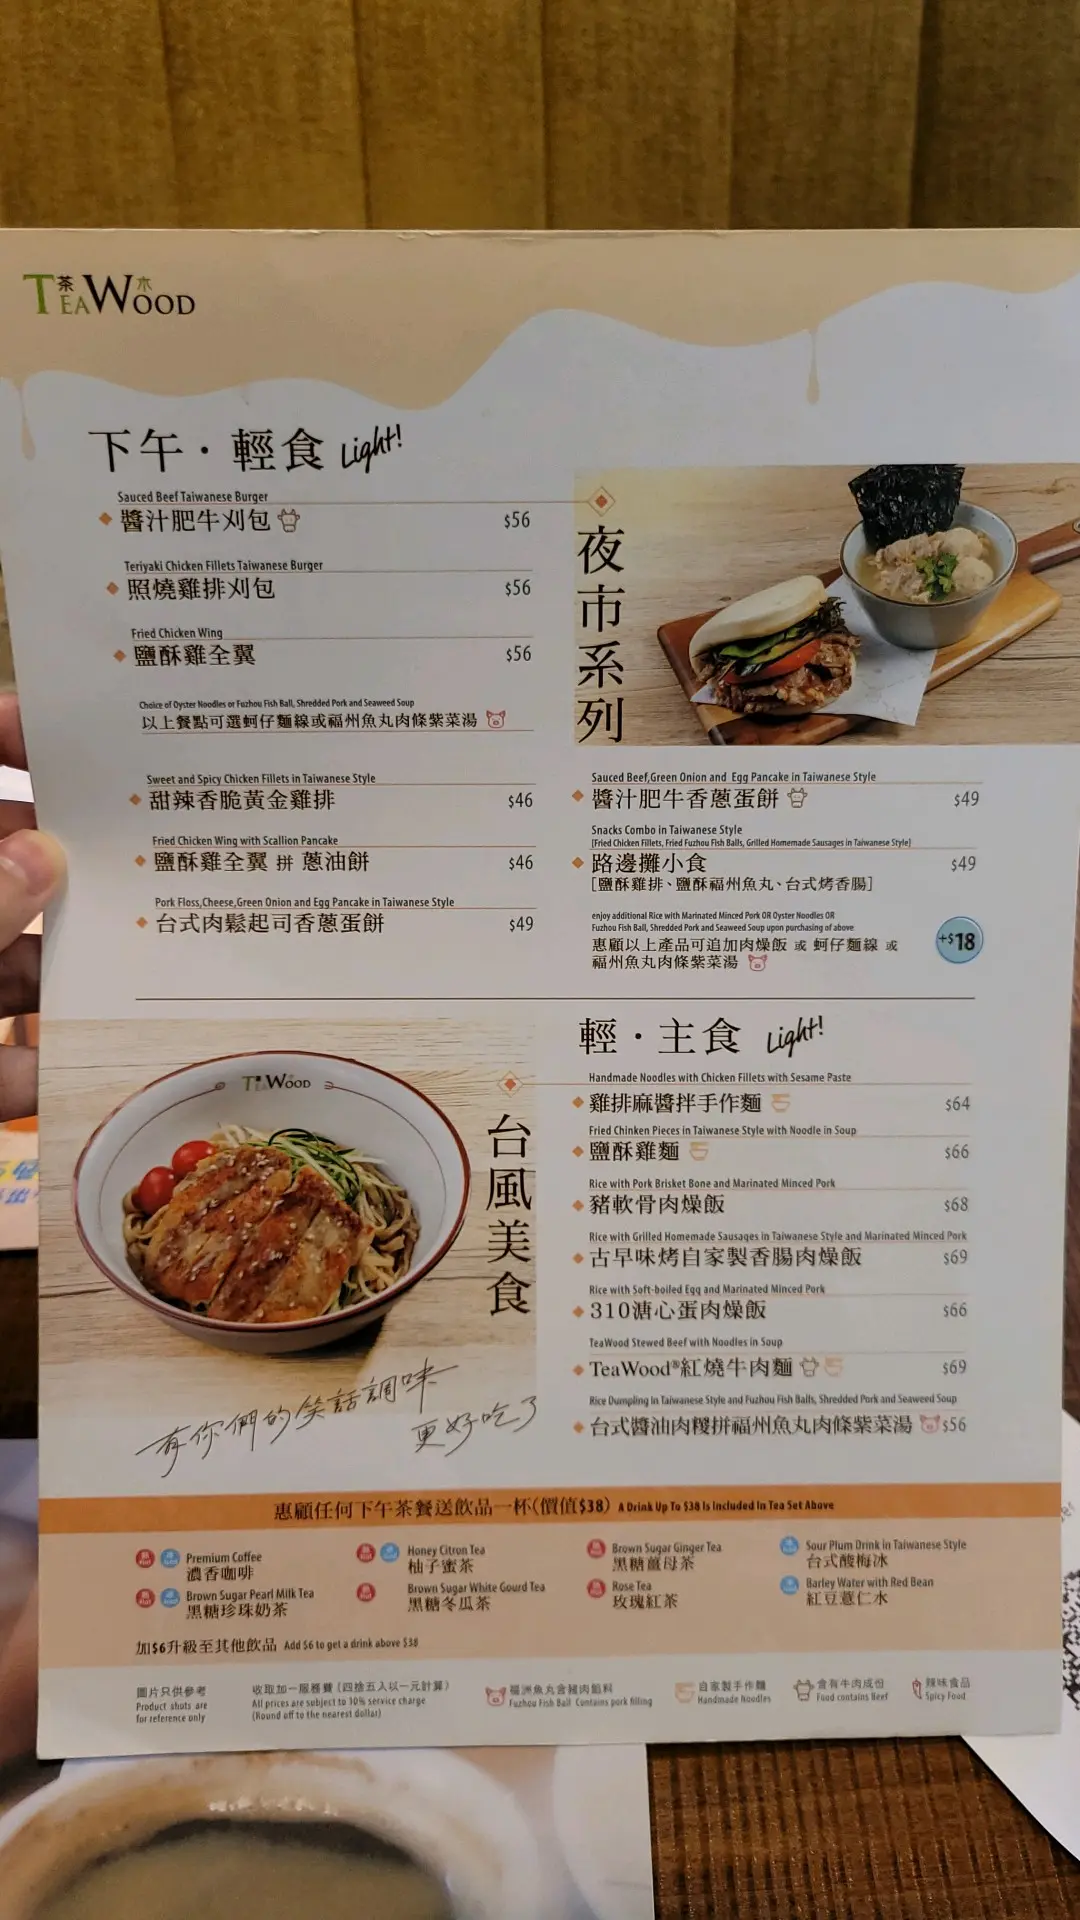 茶木
TEAWOOD
下午・輕食 Light!
Sauced Beef Taiwanese Burger
醬汁肥牛刈包 $56
Teriyaki Chicken Fillets Taiwanese Burger
照燒雞排刈包 $56
Fried Chicken Wing
鹽酥雞全翼 $56
Choice of Oyster Noodles or Fuzhou Fish Ball, Shredded Pork and Seaweed Soup
以上餐點可選蚵仔麵線或福州魚丸肉條紫菜湯
Sweet and Spicy Chicken Fillets in Taiwanese Style
甜辣香脆黃金雞排 $46
Fried Chicken Wing with Scallion Pancake
鹽酥雞全翼 拼 蔥油餅 $46
Pork Floss,Cheese,Green Onion and Egg Pancake in Taiwanese Style
台式肉鬆起司香蔥蛋餅 $49
夜市系列
Sauced Beef,Green Onion and Egg Pancake in Taiwanese Style
醬汁肥牛香蔥蛋餅 $49
Snacks Combo in Taiwanese Style
[Fried Chicken Fillets, Fried Fuzhou Fish Balls, Grilled Homemade Sausages in Taiwanese Style]
路邊攤小食 $49
[鹽酥雞排、鹽酥福州魚丸、台式烤香腸]
enjoy additional Rice with Marinated Minced Pork OR Oyster Noodles OR
Fuzhou Fish Ball, Shredded Pork and Seaweed Soup upon purchasing of above
惠顧以上產品可追加肉燥飯 或 蚵仔麵線 或
福州魚丸肉條紫菜湯
+$18
TEAWOOD
台風美食
有你們的笑話調味
更好吃了
輕・主食 Light!
Handmade Noodles with Chicken Fillets with Sesame Paste
雞排麻醬拌手作麵 $64
Fried Chinken Pieces in Taiwanese Style with Noodle in Soup
鹽酥雞麵 $66
Rice with Pork Brisket Bone and Marinated Minced Pork
豬軟骨肉燥飯 $68
Rice with Grilled Homemade Sausages in Taiwanese Style and Marinated Minced Pork
古早味烤自家製香腸肉燥飯 $69
Rice with Soft-boiled Egg and Marinated Minced Pork
310溏心蛋肉燥飯 $66
TeaWood Stewed Beef with Noodles in Soup
TeaWood®紅燒牛肉麵 $69
Rice Dumpling in Taiwanese Style and Fuzhou Fish Balls, Shredded Pork and Seaweed Soup
台式醬油肉糭拼福州魚丸肉條紫菜湯 $56
惠顧任何下午茶餐送飲品一杯(價值$38) A Drink Up To $38 Is Included In Tea Set Above
熱 Hot 凍 Iced Premium Coffee
濃香咖啡
熱 Hot 凍 Iced Brown Sugar Pearl Milk Tea
黑糖珍珠奶茶
熱 Hot 凍 Iced Honey Citron Tea
柚子蜜茶
熱 Hot Brown Sugar White Gourd Tea
黑糖冬瓜茶
熱 Hot Brown Sugar Ginger Tea
黑糖薑母茶
熱 Hot Rose Tea
玫瑰紅茶
凍 Iced Sour Plum Drink in Taiwanese Style
台式酸梅冰
凍 Iced Barley Water with Red Bean
紅豆薏仁水
加$6升級至其他飲品 Add $6 to get a drink above $38
圖片只供參考
Product shots are
for reference only
收取加一服務費 (四捨五入以一元計算)
All prices are subject to 10% service charge
(Round off to the nearest dollar)
福洲魚丸含豬肉餡料
Fuzhou Fish Ball Contains pork filling
自家製手作麵
Handmade Noodles
含有牛肉成份
Food contains Beef
辣味食品
Spicy Food